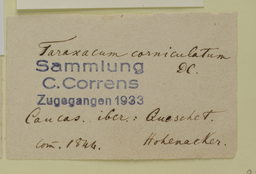 Taraxacum corniculatum
DC.
Sammlung
C. Correns
Zugegangen 1933
Caucas. iber.: Queschet.
com. 1844. Hohenacker.